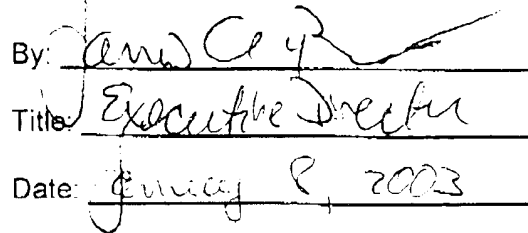 By:
Title: Executive Director
Date: January 8, 2003